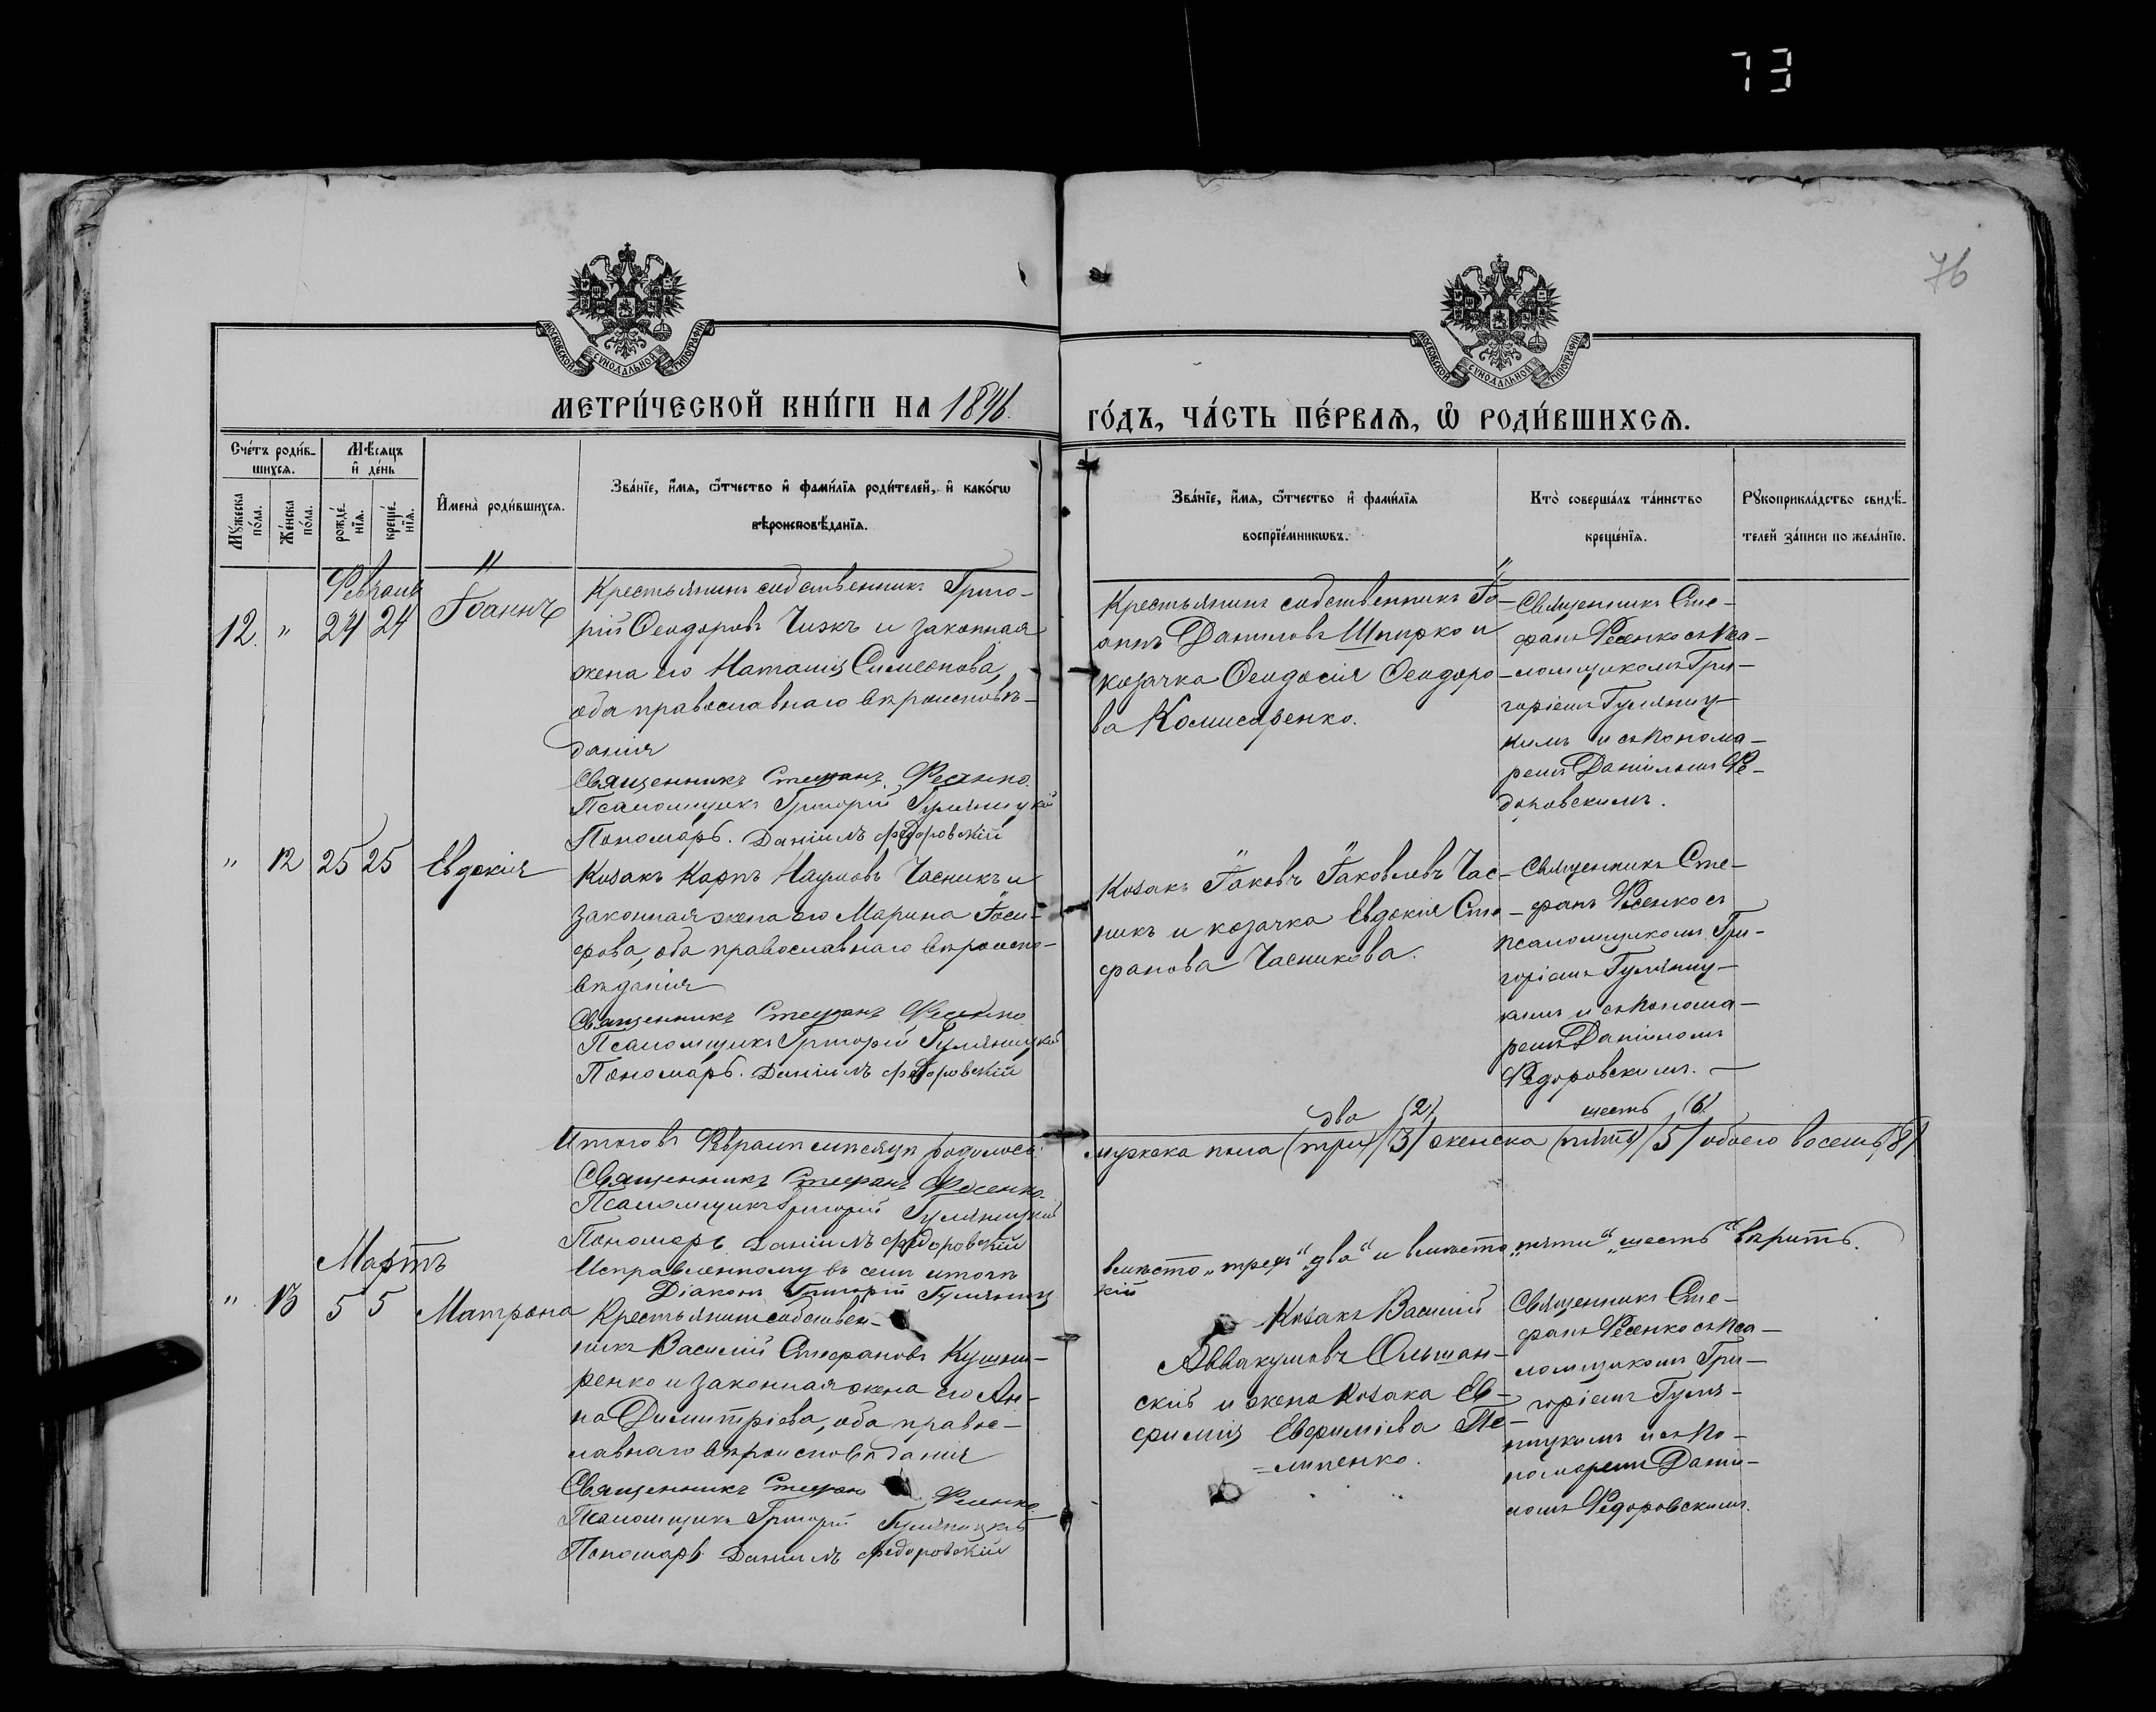 73
76
МОСКОВСКОЙ СУНОДАЛЬНОЙ ТИПОГРАФІИ
МОСКОВСКОЙ СУНОДАЛЬНОЙ ТИПОГРАФІИ
МЕТРИ́ЧЕСКОЙ КНИ́ГИ НА 1896.
ГО́ДЪ, ЧА́СТЬ ПЕ́РВАѦ, Ѡ РОДИ́ВШИХСѦ.
Сче́тъ роди́в-
шихсѧ.
Мѣ́сѧцъ
и҆ де́нь
Мꙋ́жеска
по́ла.
Же́нска
по́ла.
рожде́-
нїѧ.
креще́-
нїѧ.
И҆мена̀ роди́вшихсѧ.
Зва́нїе, и҆́мѧ, ѻ҆́тчество и҆ фами́лїѧ роди́телей, и҆ како́гѡ
вѣроисповѣ́данїѧ.
Зва́нїе, и҆́мѧ, ѻ҆́тчество и҆ фами́лїѧ
воспрїе́мникѡвъ.
Кто̀ соверша́лъ та́инство
креще́нїѧ.
Рꙋкоприкла́дство свидѣ́-
телей за́писи по жела́нїю.
Февраль
12. " 24 24 Іоаннъ
Крестьянинъ собственникъ Григо-
рій Ѳеодоровъ Чижъ и законная
жена его Наталія Симеонова,
оба православнаго вѣроисповѣ-
данія
Священникъ Стефанъ Фесенко.
Псаломщикъ Григорій Гуляницкій
Пономарь. Даніилъ Федоровскій
Крестьянинъ собственникъ Іо-
аннъ Даниловъ Шпирко и
козачка Ѳеодосія Ѳеодоро-
ва Комисаренко.
Священникъ Сте-
фанъ Фесенко съ Пса-
ломщикомъ Гри-
горіемъ Гуляниц-
кимъ и съ Понома-
ремъ Даніиломъ Фе-
доровскимъ.
" 12 25 25 Евдокія
Козакъ Карпъ Наумовъ Часникъ и
законная жена его Марина Іоси-
фова, оба православнаго вѣроиспо-
вѣданія
Священникъ Стефанъ Фесенко
Псаломщикъ Григорій Гуляницкій
Пономарь. Даніилъ Федоровскій
Козакъ Іаковъ Іаковлевъ Час-
никъ и козачка Евдокія Сте-
фанова Часникова.
Священникъ Сте-
фанъ Фесенко съ
псаломщикомъ Гри-
горіемъ Гуляниц-
кимъ и съ Понома-
ремъ Даніиломъ
Федоровскимъ.
два (2) шесть (6)
Итого въ Февралѣ мѣсяцѣ родилось:
мужеска пола (три) /3/ женска (пять) /5/ обоего восемь /8/
Священникъ Стефанъ Фесенко.
Псаломщикъ Григорій Гуляницкій
Пономарь Даніилъ Федоровскій
Исправленному въ семъ итогѣ
вмѣсто „трехъ" „два" и вмѣсто „пяти" „шесть" вѣрить.
Діаконъ Григорій Гуляниц
кій
Мартъ
" 13 5 5 Матрона
Крестьянинъ собствен-
никъ Василій Стефановъ Кушни-
ренко и законная жена его Ан-
на Димитріева, оба право-
славнаго вѣроисповѣданія
Священникъ Стефан Фесенко
Псаломщикъ Григорій Гуляницкій
Пономарь Даніилъ Федоровскій
Козакъ Василій
Аввакумовъ Ольшан-
скій и жена козака Ев-
фимія Евфиміева Пе-
Священникъ Сте-
фанъ Фесенко съ Пса-
ломщикомъ Гри-
горіемъ Гуля-
ницкимъ и съ По-
номаремъ Дани-
ломъ Федоровскимъ.